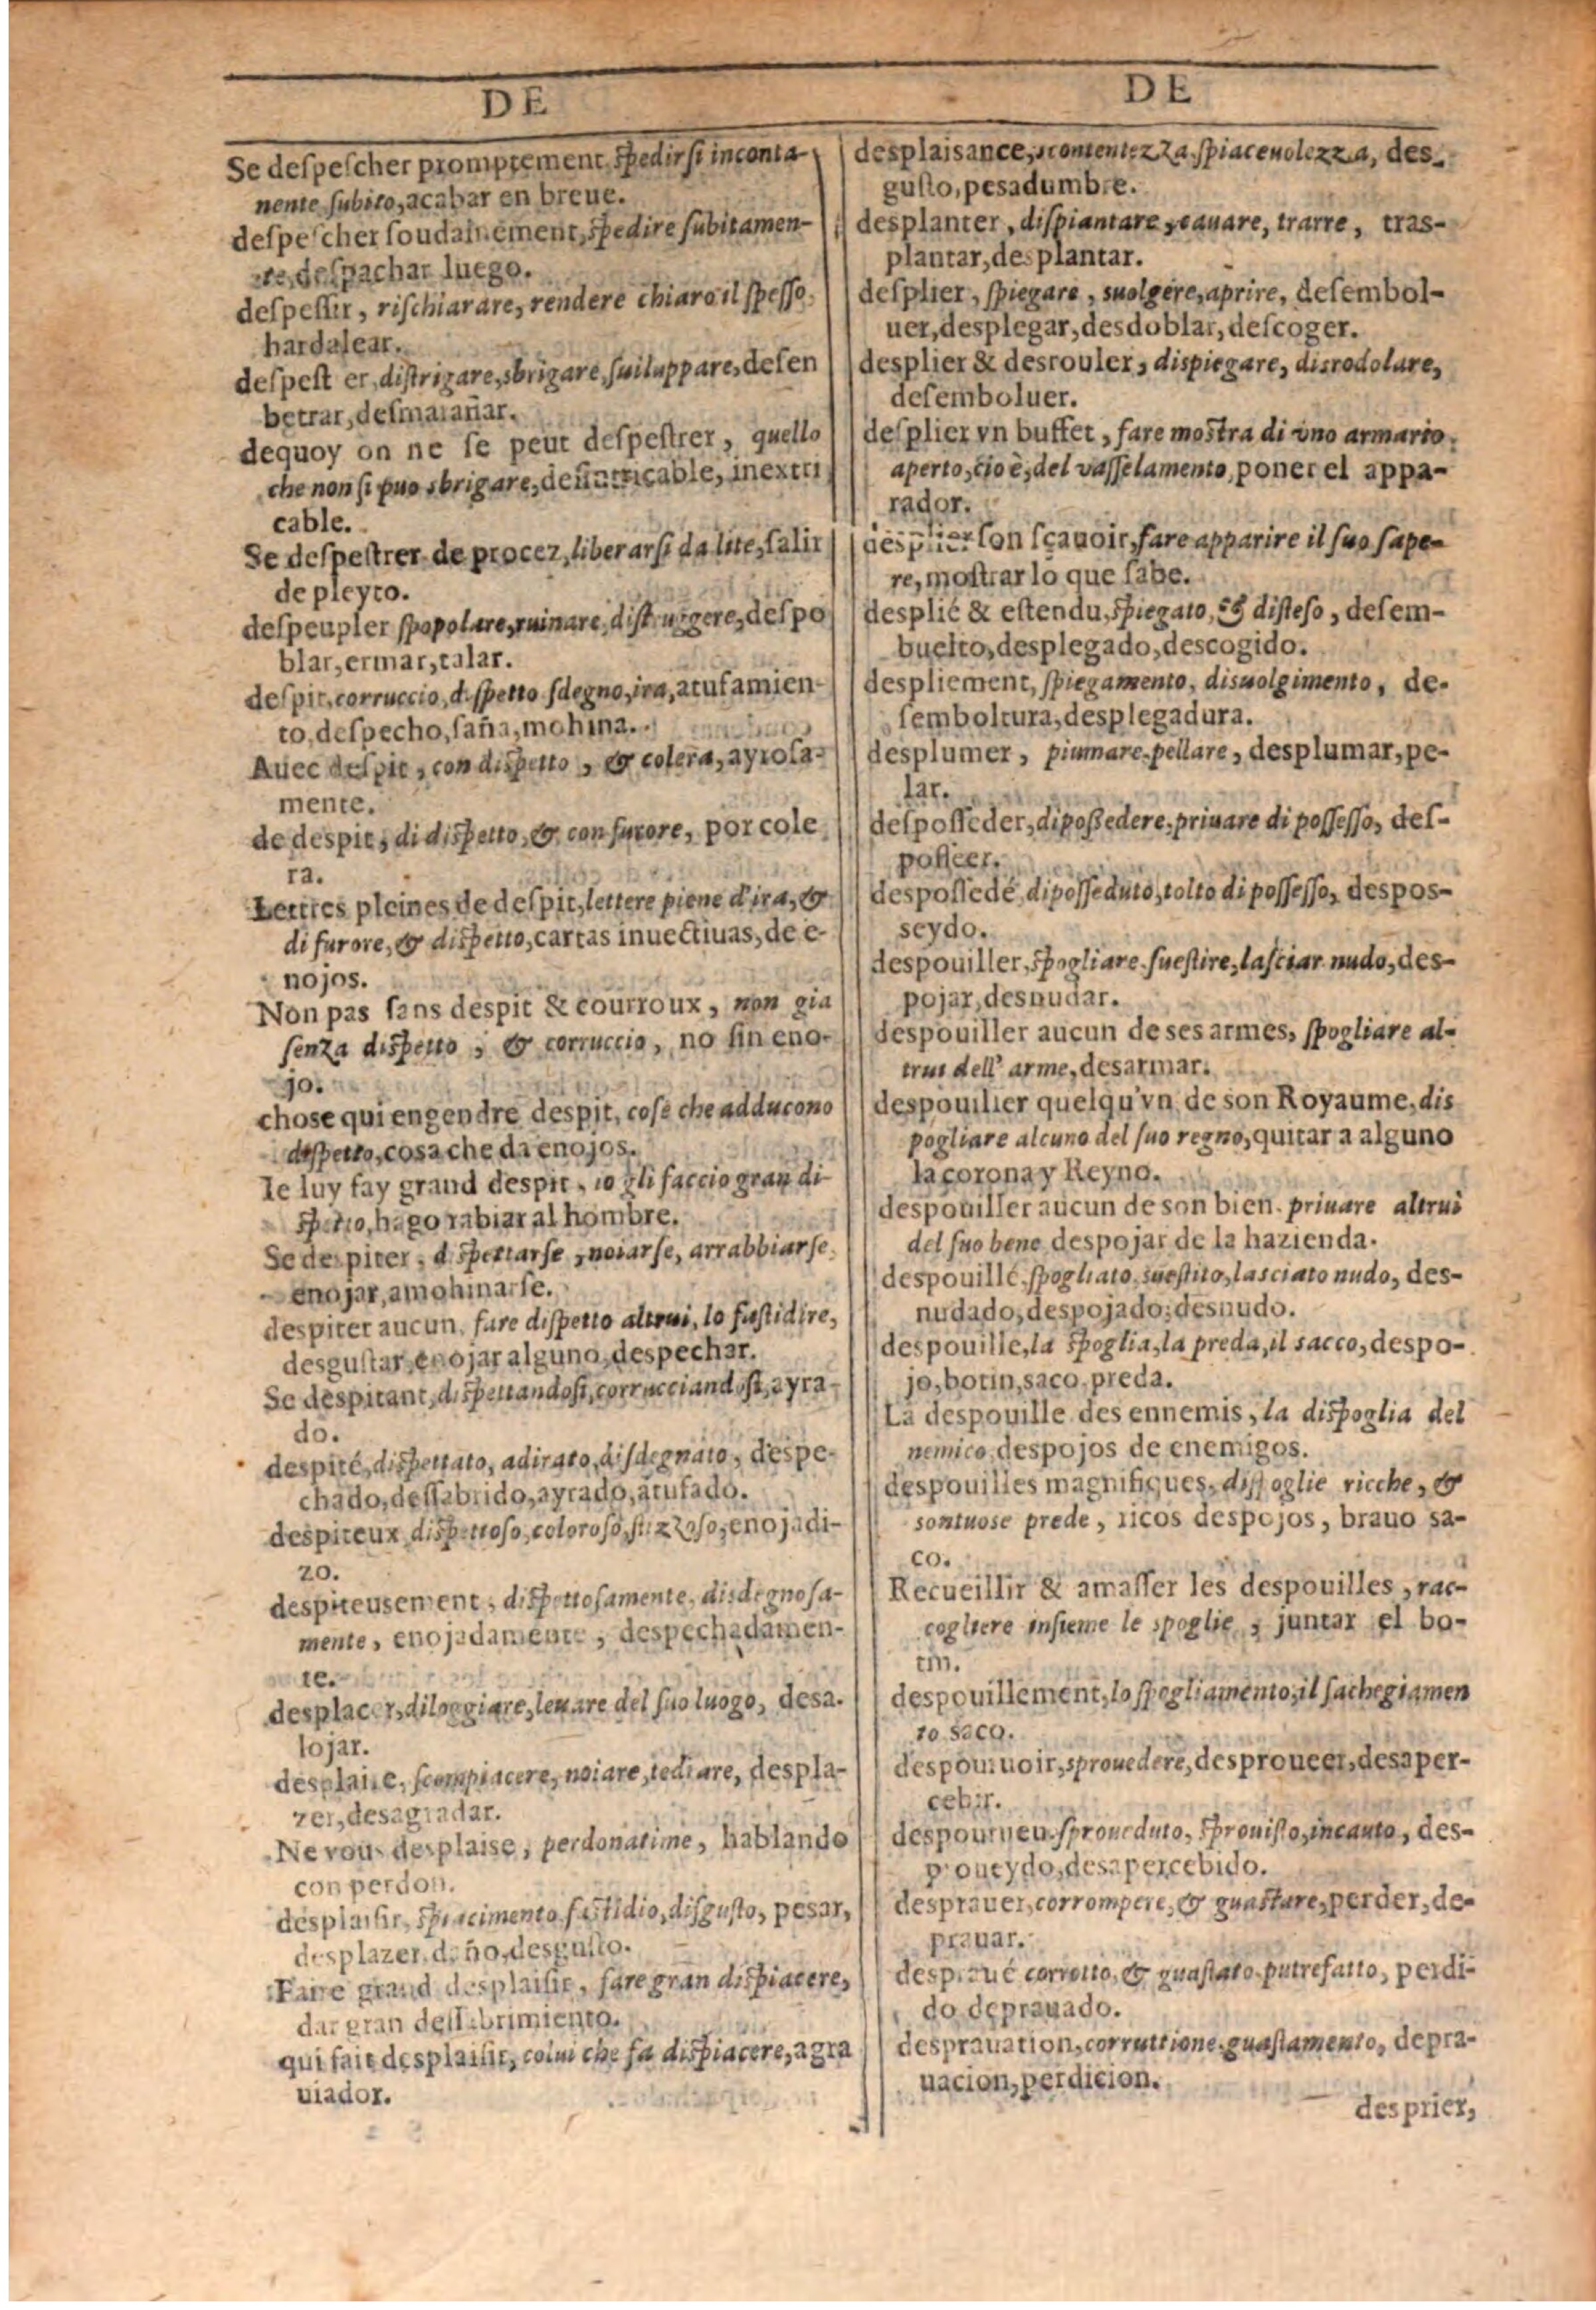 DE
Se deſpeſcher promptement, ſpedirſi inconta-
nente ſubito, acabar en breue.
deſpeſcher ſoudainement, ſpedire ſubitamen-
te, deſpachar luego.
deſpeſſir, riſchiarare, rendere chiaro il ſpeſſo,
hardalear.
deſpeſt er, diſtrigare, sbrigare, ſuiluppare, deſen
betrar, deſmarañar.
dequoy on ne ſe peut deſpeſtrer, quello
che non ſi puo sbrigare, inextri
cable.
Se deſpeſtrer de procez, liberarſi da lite, ſalir
de pleyto.
deſpeupler ſpopolare, ruinare, diſtruggere, deſpo
blar, ermar, talar.
deſpit, corruccio, diſpetto ſdegno, ira, atufamien-
to, deſpecho, ſaña, mohina.
Auec deſpit, con diſpetto, & colera, ayroſa-
mente.
de deſpit, di diſpetto, & con furore, por cole
ra.
Lettres pleines de deſpit, lettere piene d'ira, &
di furore, & diſpetto, cartas inuectiuas, de e-
nojos.
Non pas ſans deſpit & courroux, non gia
ſenza diſpetto, & corruccio, no ſin eno-
jo.
chose qui engendre deſpit, coſe che adducono
diſpetto, cosa che da enojos.
Ie luy fay grand deſpit, io gli faccio gran di-
ſpetto, hago rabiar al hombre.
Se deſpiter, diſpettarſe, noiarſe, arrabbiarſe,
enojar, amohinarſe.
deſpiter aucun, fare diſpetto altrui, lo faſtidire,
desguſtar, enojar alguno, despechar.
Se deſpitant, diſpettandoſi, corrucciandoſi, ayra-
do.
despité, diſpettato, adirato, diſdegnato, deſpe-
chado, deſſabrido, ayrado, atufado.
despiteux diſpettoso, coloroso, ſtizzoso, enojadi-
zo.
despiteusement, diſpettoſamente, disdegnoſa-
mente, enojadamente, despechadamen-
te.
desplacer, diloggiare, leuare del ſuo luogo, desa-
lojar.
desplaire, ſcompiacere, noiare, tediare, despla-
zer, desagradar.
Ne vous desplaise, perdonatime, hablando
con perdon.
desplaiſir, ſpiacimento faſtidio, diſguſto, pesar,
desplazer, daño, desguſto.
Faire grand desplaiſir, fare gran diſpiacere,
dar gran deſſabrimiento.
qui fait desplaiſir, colui che fa diſpiacere, agra
uiador.
DE
desplaisance, scontentezza, spiaceuolezza, des-
guſto, pesadumbre.
desplanter, diſpiantare, cauare, trarre, tras-
plantar, desplantar.
deſplier, ſpiegare, suolgere, aprire, deſembol-
uer, desplegar, desdoblar, deſcoger.
desplier & desrouler, dispiegare, disrodolare,
deſemboluer.
deſplier vn buffet, fare moſtra di vno armario
aperto, cio è, del vaſſelamento, poner el appa-
rador.
desplier ſon ſçauoir, fare apparire il ſuo ſape-
re, moſtrar lo que ſabe.
desplié & eſtendu, ſpiegato, & diſteſo, deſem-
buelto, desplegado, descogido.
despliement, ſpiegamento, disuolgimento, de-
ſemboltura, desplegadura.
desplumer, piumare, pellare, desplumar, pe-
lar.
deſpoſſeder, dipoſſedere, priuare di poſſeſſo, deſ-
poſſeer.
despoſſedé, dipoſſeduto, tolto di poſſeſſo, despos-
seydo.
despouiller, ſpogliare, ſueſtire, laſciar nudo, des-
pojar, desnudar.
despouiller aucun de ses armes, ſpogliare al-
trui dell' arme, desarmar.
despouiller quelqu'vn de son Royaume, dis
pogliare alcuno del ſuo regno, quitar a alguno
la corona y Reyno.
despouiller aucun de son bien. priuare altrui
del ſuo bene despojar de la hazienda.
despouillé, ſpogliato, sueſtito, lasciato nudo, des-
nudado, despojado, desnudo.
despouille, la ſpoglia, la preda, il sacco, despo-
jo, botin, saco, preda.
La despouille des ennemis, la diſpoglia del
nemico, despojos de enemigos.
despouilles magnifiques, diſpoglie ricche, &
sontuose prede, ricos despojos, brauo sa-
co.
Recueillir & amaſſer les despouilles, rac-
cogliere inſieme le spoglie, juntar el bo-
tin.
despouillement, lo ſpogliamento, il ſachegiamen
to saco.
despouruoir, sprouedere, desproueer, desaper-
cebir.
despourueu, sproueduto, ſprouiſto, incauto, des-
proueydo, desapercebido.
desprauer, corrompere, & guaſtare, perder, de-
prauar.
despraué corrotto, & guaſtato, putrefatto, perdi-
do deprauado.
desprauation, corruttione, guaſtamento, depra-
uacion, perdicion.
desprier,